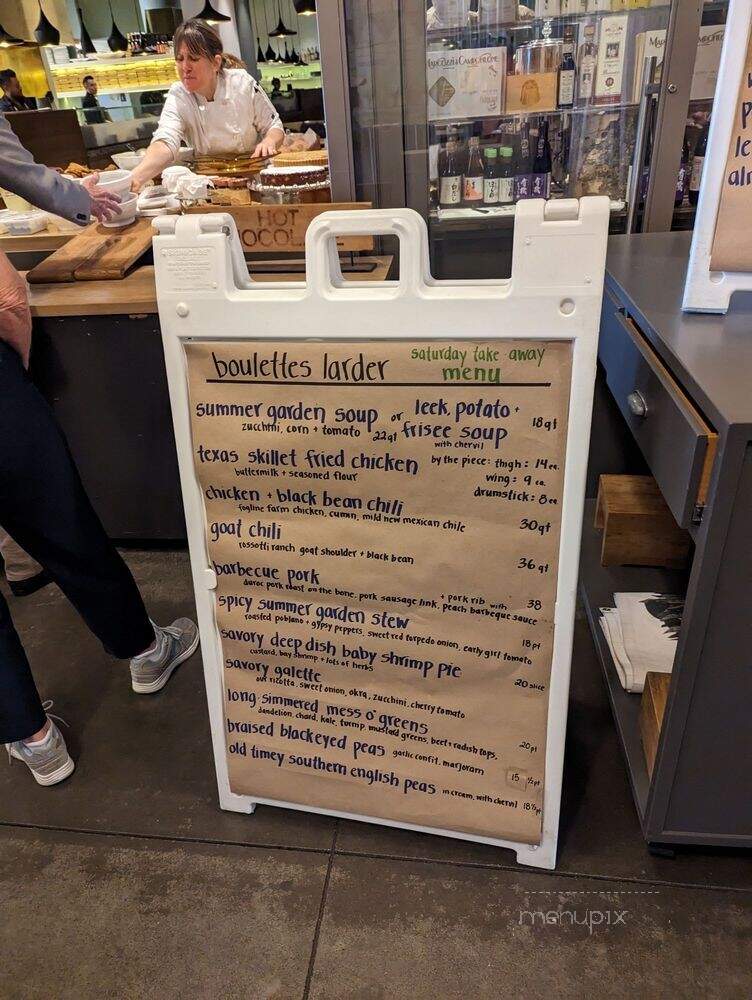 HOT
boulettes larder
saturday take away
menu
summer garden soup or leek, potato +
zucchini, corn + tomato 22qt frisée soup 18qt
with chervil
texas skillet fried chicken by the piece: thigh: 14 ea.
buttermilk + seasoned flour wing: 9 ea.
drumstick: 8 ea
chicken + black bean chili
fogline farm chicken, cumin, mild new mexican chile 30qt
goat chili
rossotti ranch goat shoulder + black bean 36 qt
barbecue pork
duroc pork roast on the bone, pork sausage link, + pork rib with peach barbeque sauce 38
spicy summer garden stew
roasted poblano + gypsy peppers, sweet red torpedo onion, early girl tomato 18 pt
savory deep dish baby shrimp pie
custard, bay shrimp + lots of herbs 20 slice
savory galette
our ricotta, sweet onion, okra, zucchini, cherry tomato
long-simmered mess o' greens
dandelion, chard, kale, turnip, mustard greens, beet + radish tops, 20 pt
braised blackeyed peas garlic confit, marjoram 15 1/2 pt
old timey southern english peas in cream, with chervil 18 1/2 pt
menupix